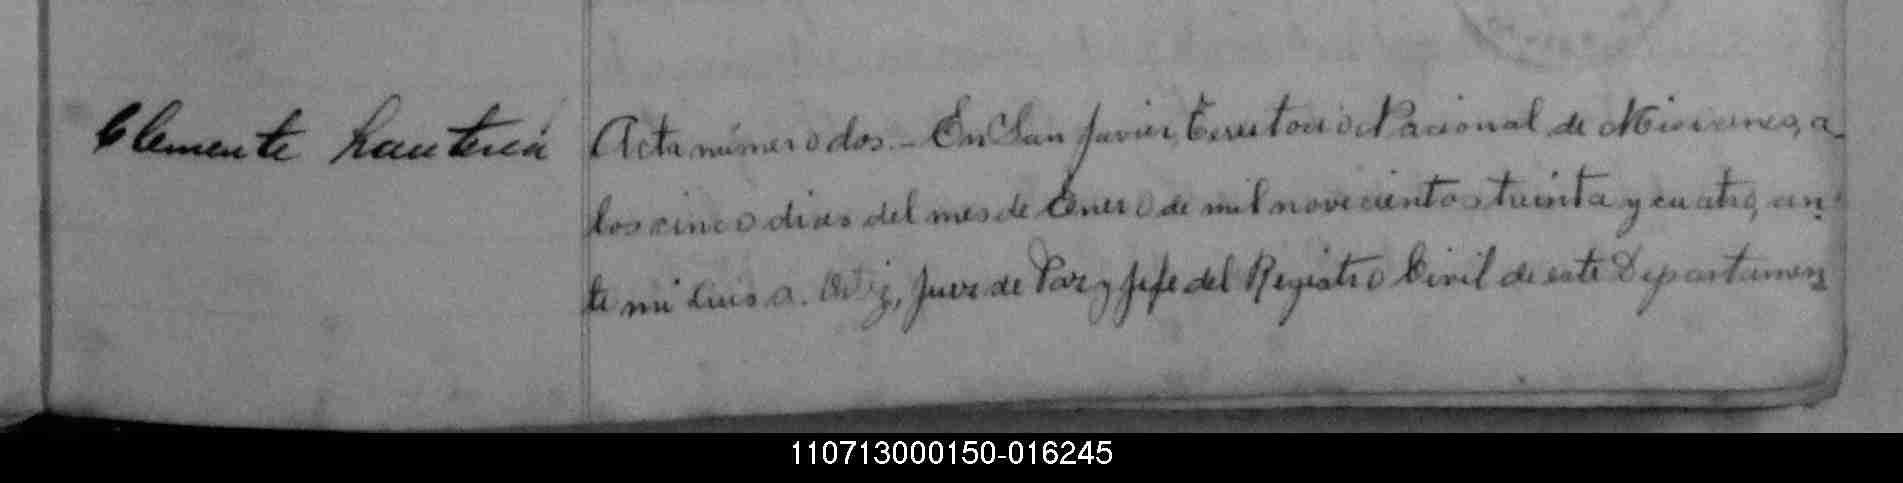 Clemente
Acta número dos.- En San Javier, Territorio Nacional de Misiones, a
los cinco dias del mes de Enero de mil novecientos treinta y cuatro, an-
te mi Luis A. Ortiz, Juez de Paz y Jefe del Registro Civil de este Departamen
110713000150-016245